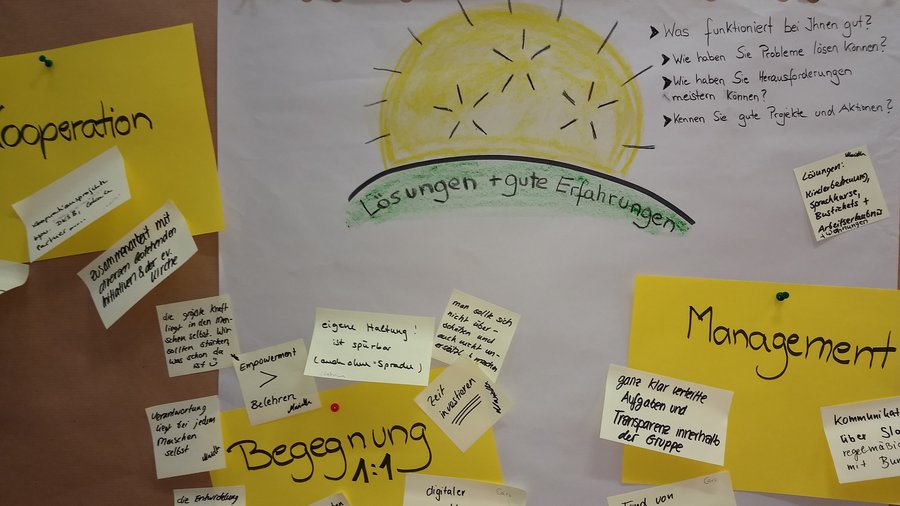 Kooperation
Kooperationsprojekte
Partner
Zusammenarbeit mit
diversen bestehenden
Initiativen & der ev.
Kirche
Lösungen + gute Erfahrungen
Was funktioniert bei Ihnen gut?
Wie haben Sie Probleme lösen können?
Wie haben Sie Herausforderungen
meistern können?
Kennen Sie gute Projekte und Aktionen?
Lösungen:
Kinderbetreuung,
Sprachkurse,
Bustickets +
Arbeitserlaubnis
+ Wohnungen
die größte Kraft
liegt in den Men-
schen selbst. Wir
sollten stärken,
was schon da
ist
Empowerment
>
Belehren
eigene Haltung!
ist spürbar
(auch ohne Sprache)
man sollte sich
nicht über-
schätzen und
auch nicht un-
ersetzl. machen
Zeit
investieren
Verantwortung
liegt bei jedem
Menschen
selbst
Begegnung
1:1
die Entwicklung
digitaler
Management
ganz klar verteilte
Aufgaben und
Transparenz innerhalb
der Gruppe
Kommunikat
über
regelmäßi
mit
von